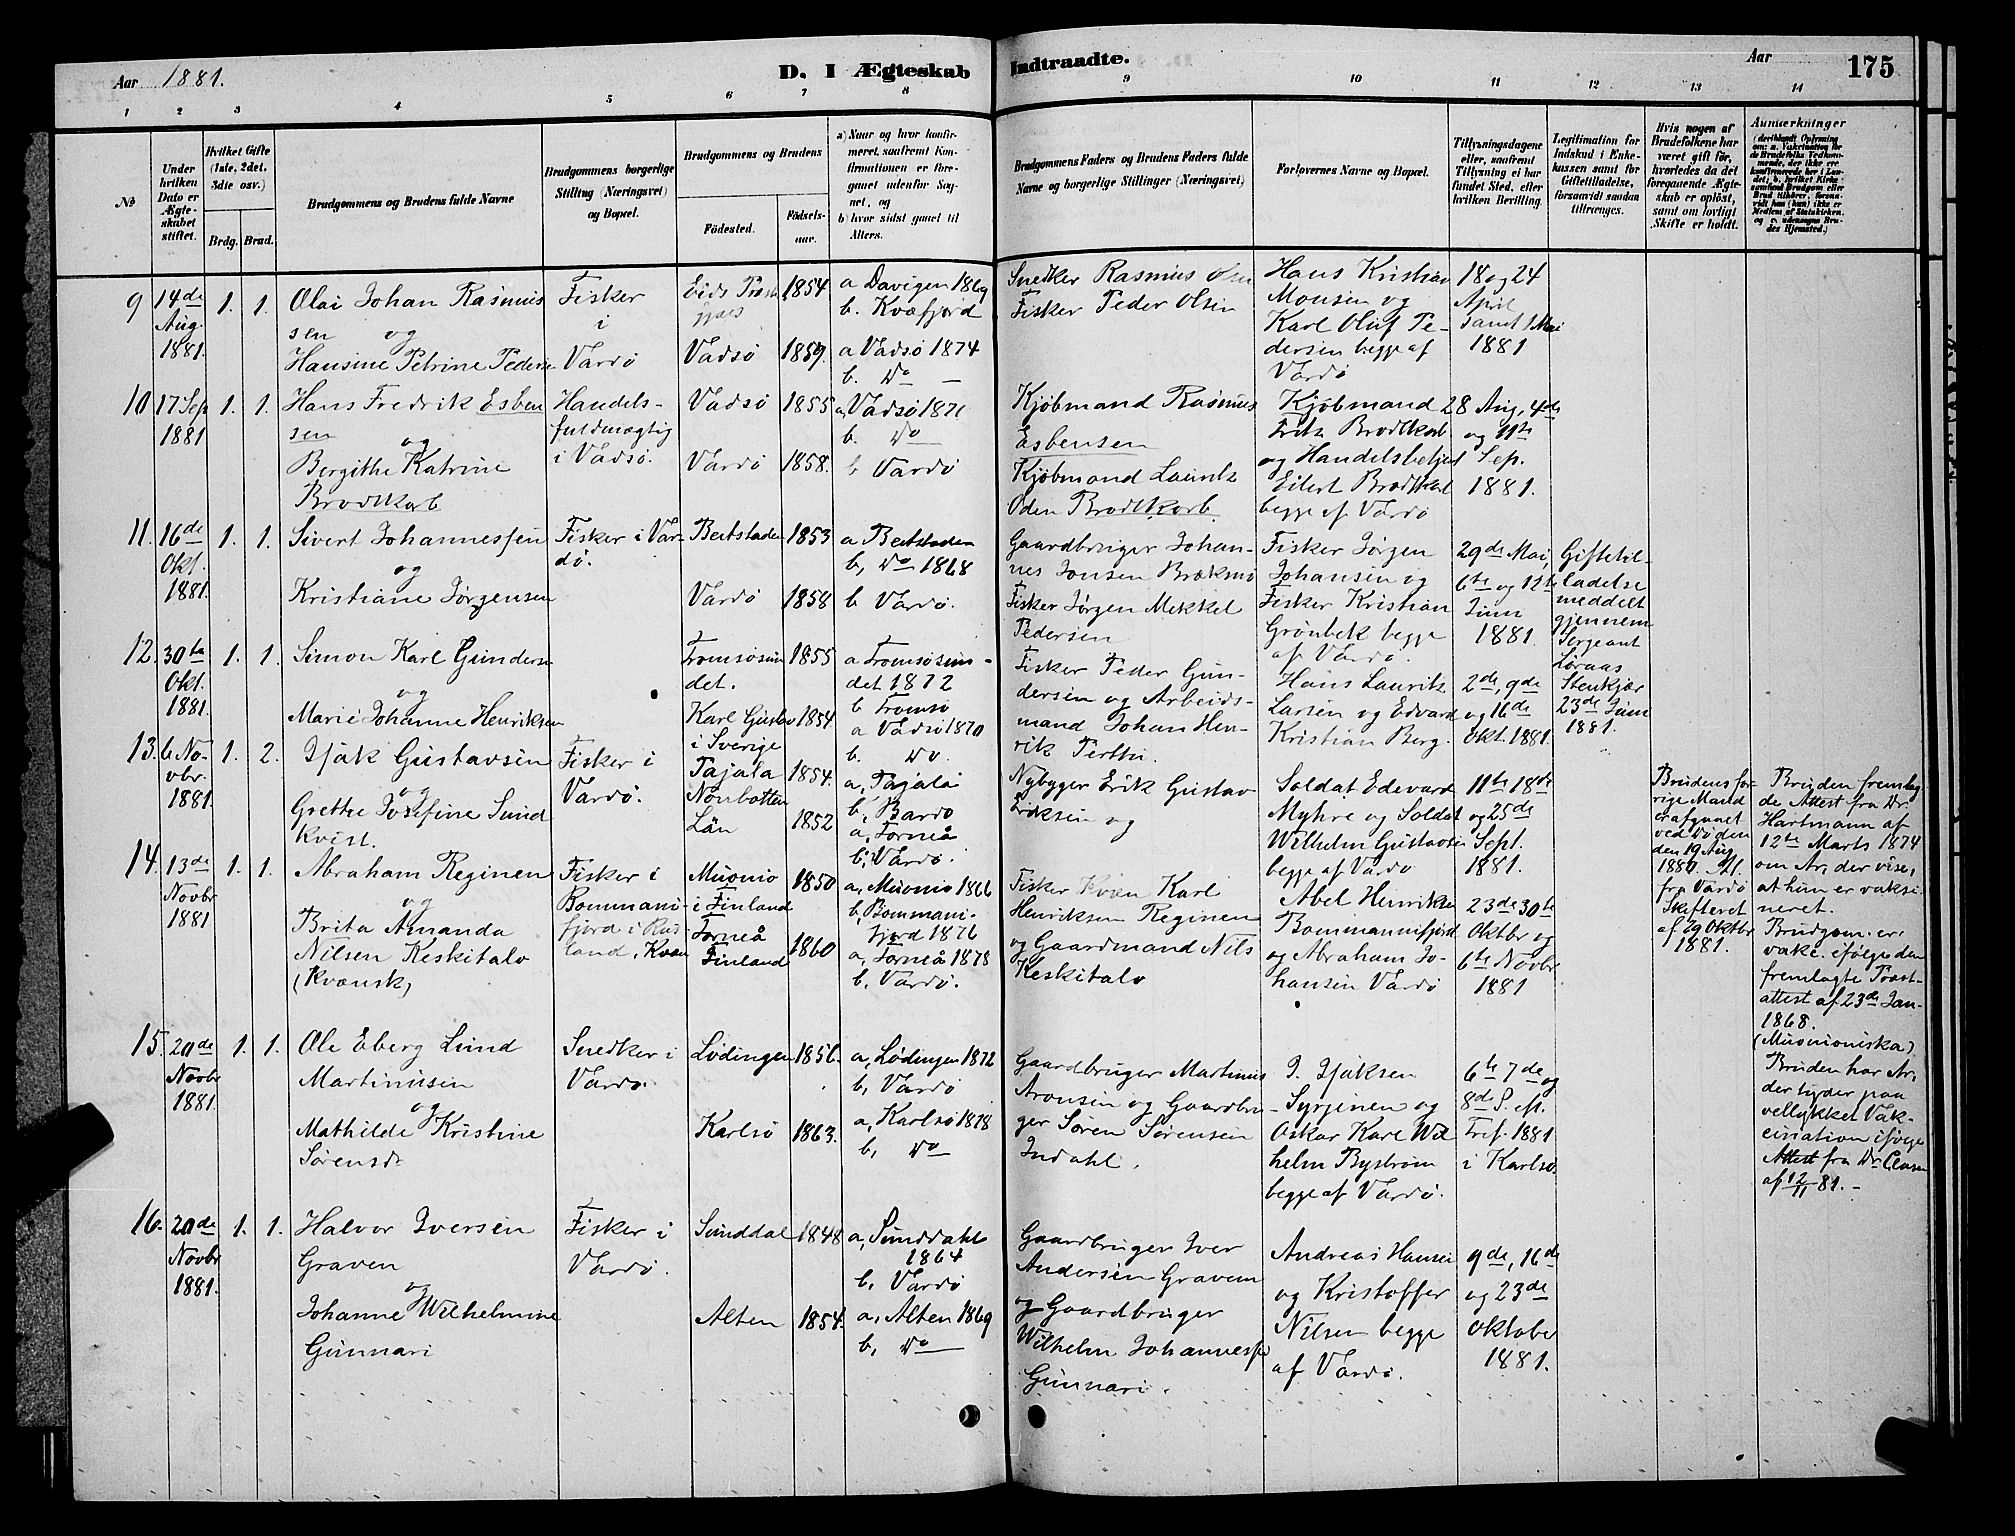 Aar 1881.
D. I Ægteskab
Indtraadte.
Aar
175
1 2 3 4 5 6 7 8 9 10 11 12 13 14
№
Under
hvilken
Dato er
Ægte-
skabet
stiftet.
Hvilket Gifte
(1ste, 2det,
3die osv.)
Brdg. Brud.
Brudgommens og Brudens fulde Navne
Brudgommens borgerlige
Stilling (Næringsvei)
og Bopæl.
Brudgommens og Brudens
Födested.
Födsels-
aar.
a) Naar og hvor konfir-
meret, saafremt Kon-
firmationen er fore-
gaaet udenfor Sog-
net, og
b) hvor sidst gaaet til
Alters.
Brudgommens Faders og Brudens Faders fulde
Navne og borgerlige Stillinger (Næringsvei)
Forlovernes Navne og Bopæl.
Tillysningsdagene
eller, saafremt
Tillysning ei har
fundet Sted, efter
hvilken Bevilling.
Legitimation for
Indskud i Enke-
kassen samt for
Giftetilladelse,
forsaavidt saadan
tiltrænges.
Hvis nogen af
Brudefolkene har
været gift för,
hvorledes da det
foregaaende Ægte-
skab er oplöst,
samt om lovligt
Skifte er holdt.
Anmærkninger
9 14de Aug. 1881. 1. 1.
Olai Johan Rasmus
sen og
Hansine Petrine Peders
Fisker
i
Vardö
1854
Vadsö 1859.
a Davigen 1869
b. Kvæfjord
a Vadsö 1874
b. Do
Snedker Rasmus Olsen
Fisker Peder Olsen
Hans Kristian
Monsen og
Karl Oluf Pe-
dersen begge af
Vardö
18 og 24
April
samt 1 Mai
1881
10 17 Sep 1881 1. 1.
Hans Fredrik Esben
sen
og
Bergithe Katrine
Brodtkorb
Handels-
fuldmægtig
i Vadsö.
Vadsö 1855
Vardö 1858.
a, Vadsö 1871
b. Do
b Vardö
Kjöbmand Rasmus
Esbensen
Kjöbmand Lauritz
Oden Brodtkorb.
Kjöbmand
Fritz Brodtkorb
og Handelsbetjent
Eilert Brodtkorb
begge af Vardö
28 Aug, 4de
og 11te
Sep.
1881.
11. 16de Okt. 1881. 1. 1.
Sivert Johannessen
og
Kristiane Jörgensen
Fisker i Var-
dö.
Beitstaden 1853
Vardö 1858
a Beitstaden
b, Do 1868
b Vardö.
Gaardbruger Johan-
nes Jonsen Brækmo
Fisker Jörgen Mekkel
Pedersen
Fisker Jörgen
Johansen og
Fisker Kristian
Grönbek begge
af Vardö.
29de Mai,
6te og 12te
Juni
1881.
Giftetil-
ladelse
meddelt
gjennem
Sergeant
Löraas
Stenkjær
23de Juni
1881.
12. 30te Okt. 1881. 1. 1.
Simon Karl Gunders
og
Marie Johanne Henriksen
Tromsösun
det. 1855
Karl Gustav 1854
i Sverige
a Tromsösun-
det 1872
b Tromsö
a Vadsö 1870
b. Do.
Fisker Peder Gun-
dersen og Arbeids-
mand Johan Hen-
rik Perttu.
Hans Lauritz
Larsen og Edvard
Kristian Berg.
2de, 9de
og 16de
Okt. 1881.
13. 6 No- vbr. 1881. 1. 2.
Isak Gustavsen
og
Grethe Josefine Sund
kvist.
Fisker i
Vardö.
Pajala 1854.
Norrbotten
Län 1852
a, Pajala
b, Bardo
a, Torneå
b, Vardö.
Nybygger Erik Gustav
Eriksen og
Soldat Edevard
Myhre og Soldat
Wilhelm Gustavsen
begge af Vardö
11te 18de
og 25de
Sept.
1881.
Brudens for-
rige Mand
er afgaaet
ved Döden
den 19 Aug.
1880. At.
fra Vardö
Skifteret
af 29 Oktbr
1881.
Bruden fremlag-
de Attest fra Dr.
Hartmann af
12te Marts 1874
om Ar, der vise,
at hun er vaksi-
neret.
14. 13de Novbr 1881 1. 1.
Abraham Reginen
og
Brita Amanda
Nilsen Keskitalo
(Kvænsk)
Fisker i
Bommani-
fjord i Rus-
land, Kvæn
Muonio 1850
i Finland
Torneå 1860
Finland
a, Muonio 1866
b, Bommani-
fjord 1876
a, Torneå 1878
b, Vardö.
Fisker Kvæn Karl
Henriksen Reginen
og Gaardmand Nils
Keskitalo
Abel Henriksen
Bommannifjord
og Abraham Jo-
hansen Vardö
23de 30te
Oktbr og
6te Novbr
1881
Brudgom. er
vakc. ifölge den
fremlagte Præst-
attest af 23de Jan-
1868.
(Muonioniska)
Bruden har Ar,
der tyder paa
vellykket Vak-
cination ifölge
Attest fra Dr.
af 12/11 81. -
15. 20de Novbr 1881. 1. 1.
Ole Eberg Lund
Martinusen
og
Mathilde Kristine
Sörensdr
Snedker i
Vardö.
Lödingen 1856.
Karlsö 1863.
a, Lödingen 1872
b, Vardö
a, Karlsö 1878
b, Do
Gaardbruger Martinus
Aronsen og Gaardbru-
ger Sören Sörensen
Indahl.
I. Isaksen
Syrjinen og
Oskar Karl Wil
helm Byström
begge af Vardö.
6te 7de og
8de S. e.
Tref. 1881
i Karlsö.
16. 20de Novbr 1881. 1. 1.
Halvor Iversen
Graven
og
Johanne Wilhelmine
Gunnari
Fisker i
Vardö.
Sunddal 1848
Alten 1854.
a, Sunddahl
1864
b, Vardö
a, Alten 1869
b, Do
Gaardbruger Iver
Andersen Gravem
og Gaardbruger
Wilhelm Johannessen
Gunnari.
Andreas Hansen
og Kristoffer
Nilsen begge
af Vardö.
9de, 16de
og 23de
Oktober
1881.